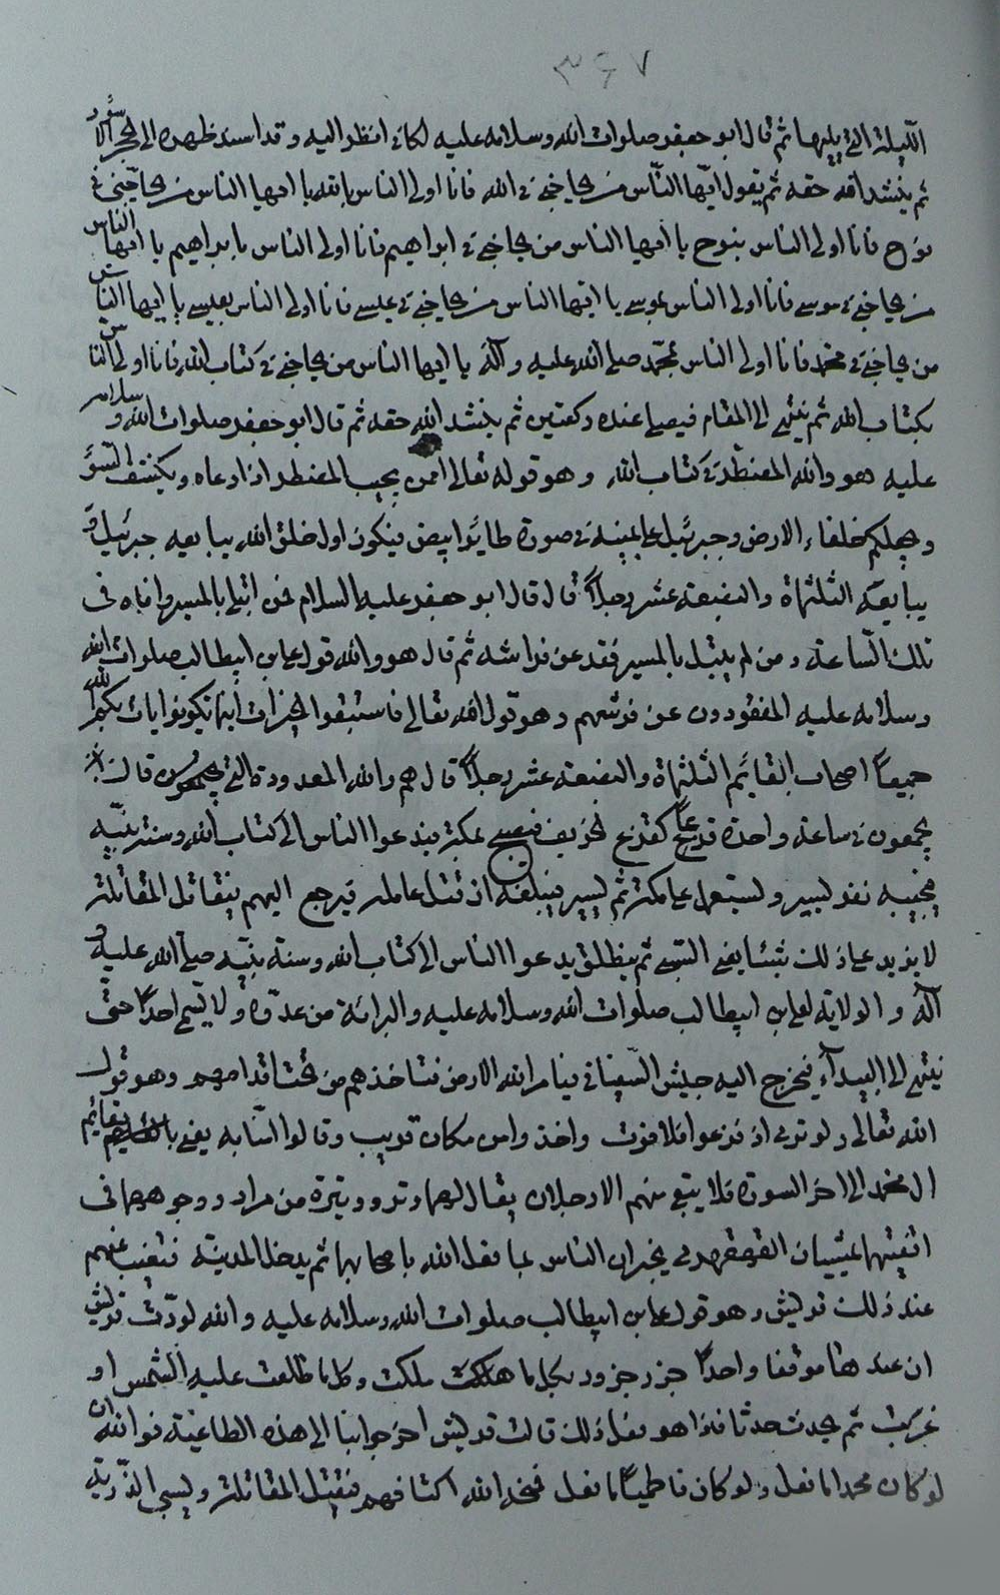 ٣٦٧
الليلة التي يليها ثم قال ابو جعفر صلوات الله وسلامه عليه لكاني انظر اليه وقد اسند ظهره الى الحجر الاسود
ثم ينشد الله حقه ثم يقول ايّها النّاس من يحاجني في الله فانا اولى الناس بالله يا ايها الناس من يحاجّني في
نوح فانا اولى الناس بنوح يا ايها الناس من يحاجني في ابراهيم فانا اولى الناس بابراهيم يا ايها الناس
من يحاجني في موسى فانا اولى الناس بموسى يا ايها الناس من يحاجني في عيسى فانا اولى الناس بعيسى يا ايها الناس
من يحاجني في محمد فانا اولى الناس بمحمّد صلى الله عليه وآله يا ايها الناس من يحاجني في كتاب الله فانا اولى الناس
بكتاب الله ثم ينتهى الى المقام فيصلى عنده ركعتين ثم ينشد الله حقه ثم قال ابو جعفر صلوات الله وسلامه
عليه هو والله المضطرّ في كتاب الله وهو قوله تعالى امن يجيب المضطر اذا دعاه ويكشف السّوء
ويجعلكم خلفاء الارض وجبرئيل على الميزاب في صورة طائر ابيض فيكون اول خلق الله يبايعه جبرئيل و
يبايعه الثلثمائة والبضعة عشر رجلاً قال قال ابو جعفر عليه السلام فمن ابتلى بالمسير وافاه فى
تلك السّاعة ومن لم يبتل بالمسير فقد عن فراشه ثم قال هو والله قول على بن ابيطالب صلوات الله
وسلامه عليه المفقودون عن فرشهم وهو قول الله تعالى فاستبقوا الخيرات اينما تكونوا يات بكم الله
جميعاً اصحاب القائم الثلثمائة والبضعة عشر رجلاً قال هم والله المعدودة التي قال
يجمعون في ساعة واحدة قزعاً كقزع الخريف فيصبح بمكة فيدعوا الناس الى كتاب الله وسنة نبيّه
فيجيبه نفر يسير ويستعمل على مكة ثم يسير فيبلغه ان قتل عامله فيرجع اليهم فيقاتل المقاتلة
لا يزيد على ذلك شيئا يعنى السبى ثم ينطلق يدعوا الناس الى كتاب الله وسنة نبيّه صلى الله عليه و
آله والولاية لعلى بن ابيطالب صلوات الله وسلامه عليه والبرائة من عدوّه ولا يسمّى احداً حتى
ينتهى الى البيدآء فيخرج اليه جيش السّفيانى فيامر الله الارض فتاخذهم من تحت اقدامهم وهو قول
الله تعالى ولو ترى اذ فزعوا فلا فوت واخذوا من مكان قريب وقالوا آمنّا به يعنى بقائم
ال محمد الى اخر السورة فلا يبقى منهم الا رجلان يقال لهما وتر ووتيرة من مراد وجوههما فى
اقفيتهما يمشيان القهقرى يخبران الناس بما فعل الله باصحابهما ثم يدخل المدينة فتغيب عنهم
عند ذلك قريش وهو قول على بن ابيطالب صلوات الله وسلامه عليه والله لودّت قريش
ان عندها موقفا واحداً جزر جزور بكل ما ملكت وكل ما طلعت عليه الشمس او
غربت ثم يحدث حدثا فاذا هو فعل ذلك قالت قريش اخرجوا بنا الى هذه الطاغية فوالله ان
لو كان محمديا ما فعل ولو كان فاطمياً ما فعل فيمنحه الله اكتافهم فيقتل المقاتلة ويسبى الذّرية